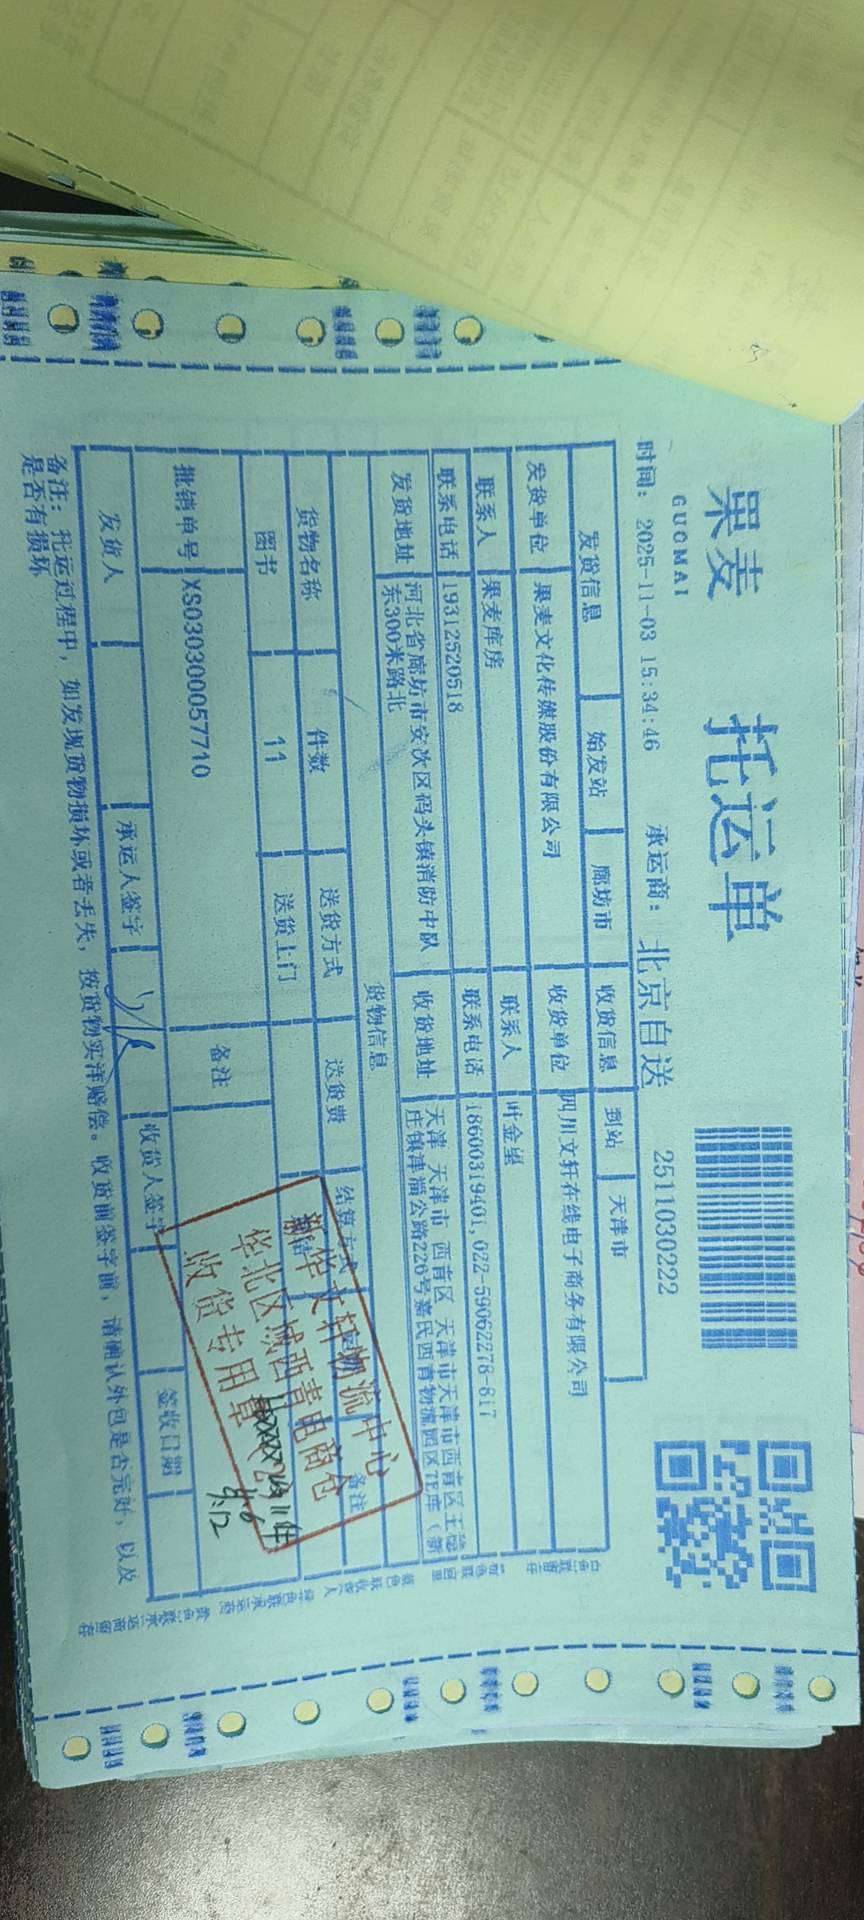 果麦
GUOMAI
托运单
时间: 2025-11-03 15:34:46
承运商: 北京自送
2511030222
发货信息 始发站 廊坊市 收货信息 到站 天津市
发货单位 果麦文化传媒股份有限公司 收货单位 四川文轩在线电子商务有限公司
联系人 果麦库房 联系人 叶金望
联系电话 19312520518 联系电话 18600319401,022-59062278-817
发货地址 河北省廊坊市安次区码头镇消防中队东300米路北 收货地址 天津 天津市 西青区 天津市天津市西青区王稳庄镇津淄公路226号嘉民西青物流园区
货物信息
货物名称 件数 送货方式 送货费 结算方式 备注
图书 11 送货上门
批销单号 XS030300057710 备注
发货人 承运人签字 收货人签字 签收日期
备注: 托运过程中, 如发现货物损坏或者丢失, 按货物实洋赔偿。收货前签字前, 请确认外包是否完好, 以及
是否有损坏
新华文轩物流中心
华北区域西青电商仓
收货专用章
白色联留存
蓝色联收货人
绿色联承运商
黄色联承运商留存